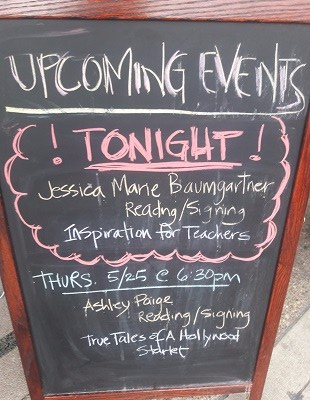 UPCOMING EVENTS
! TONIGHT !
Jessica Marie Baumgartner
Readng/Signing
Inspiration for Teachers
THURS. 5/25 @ 6:30pm
Ashley Paige
Reading/Signing
True Tales of A Hollywood
Starlet